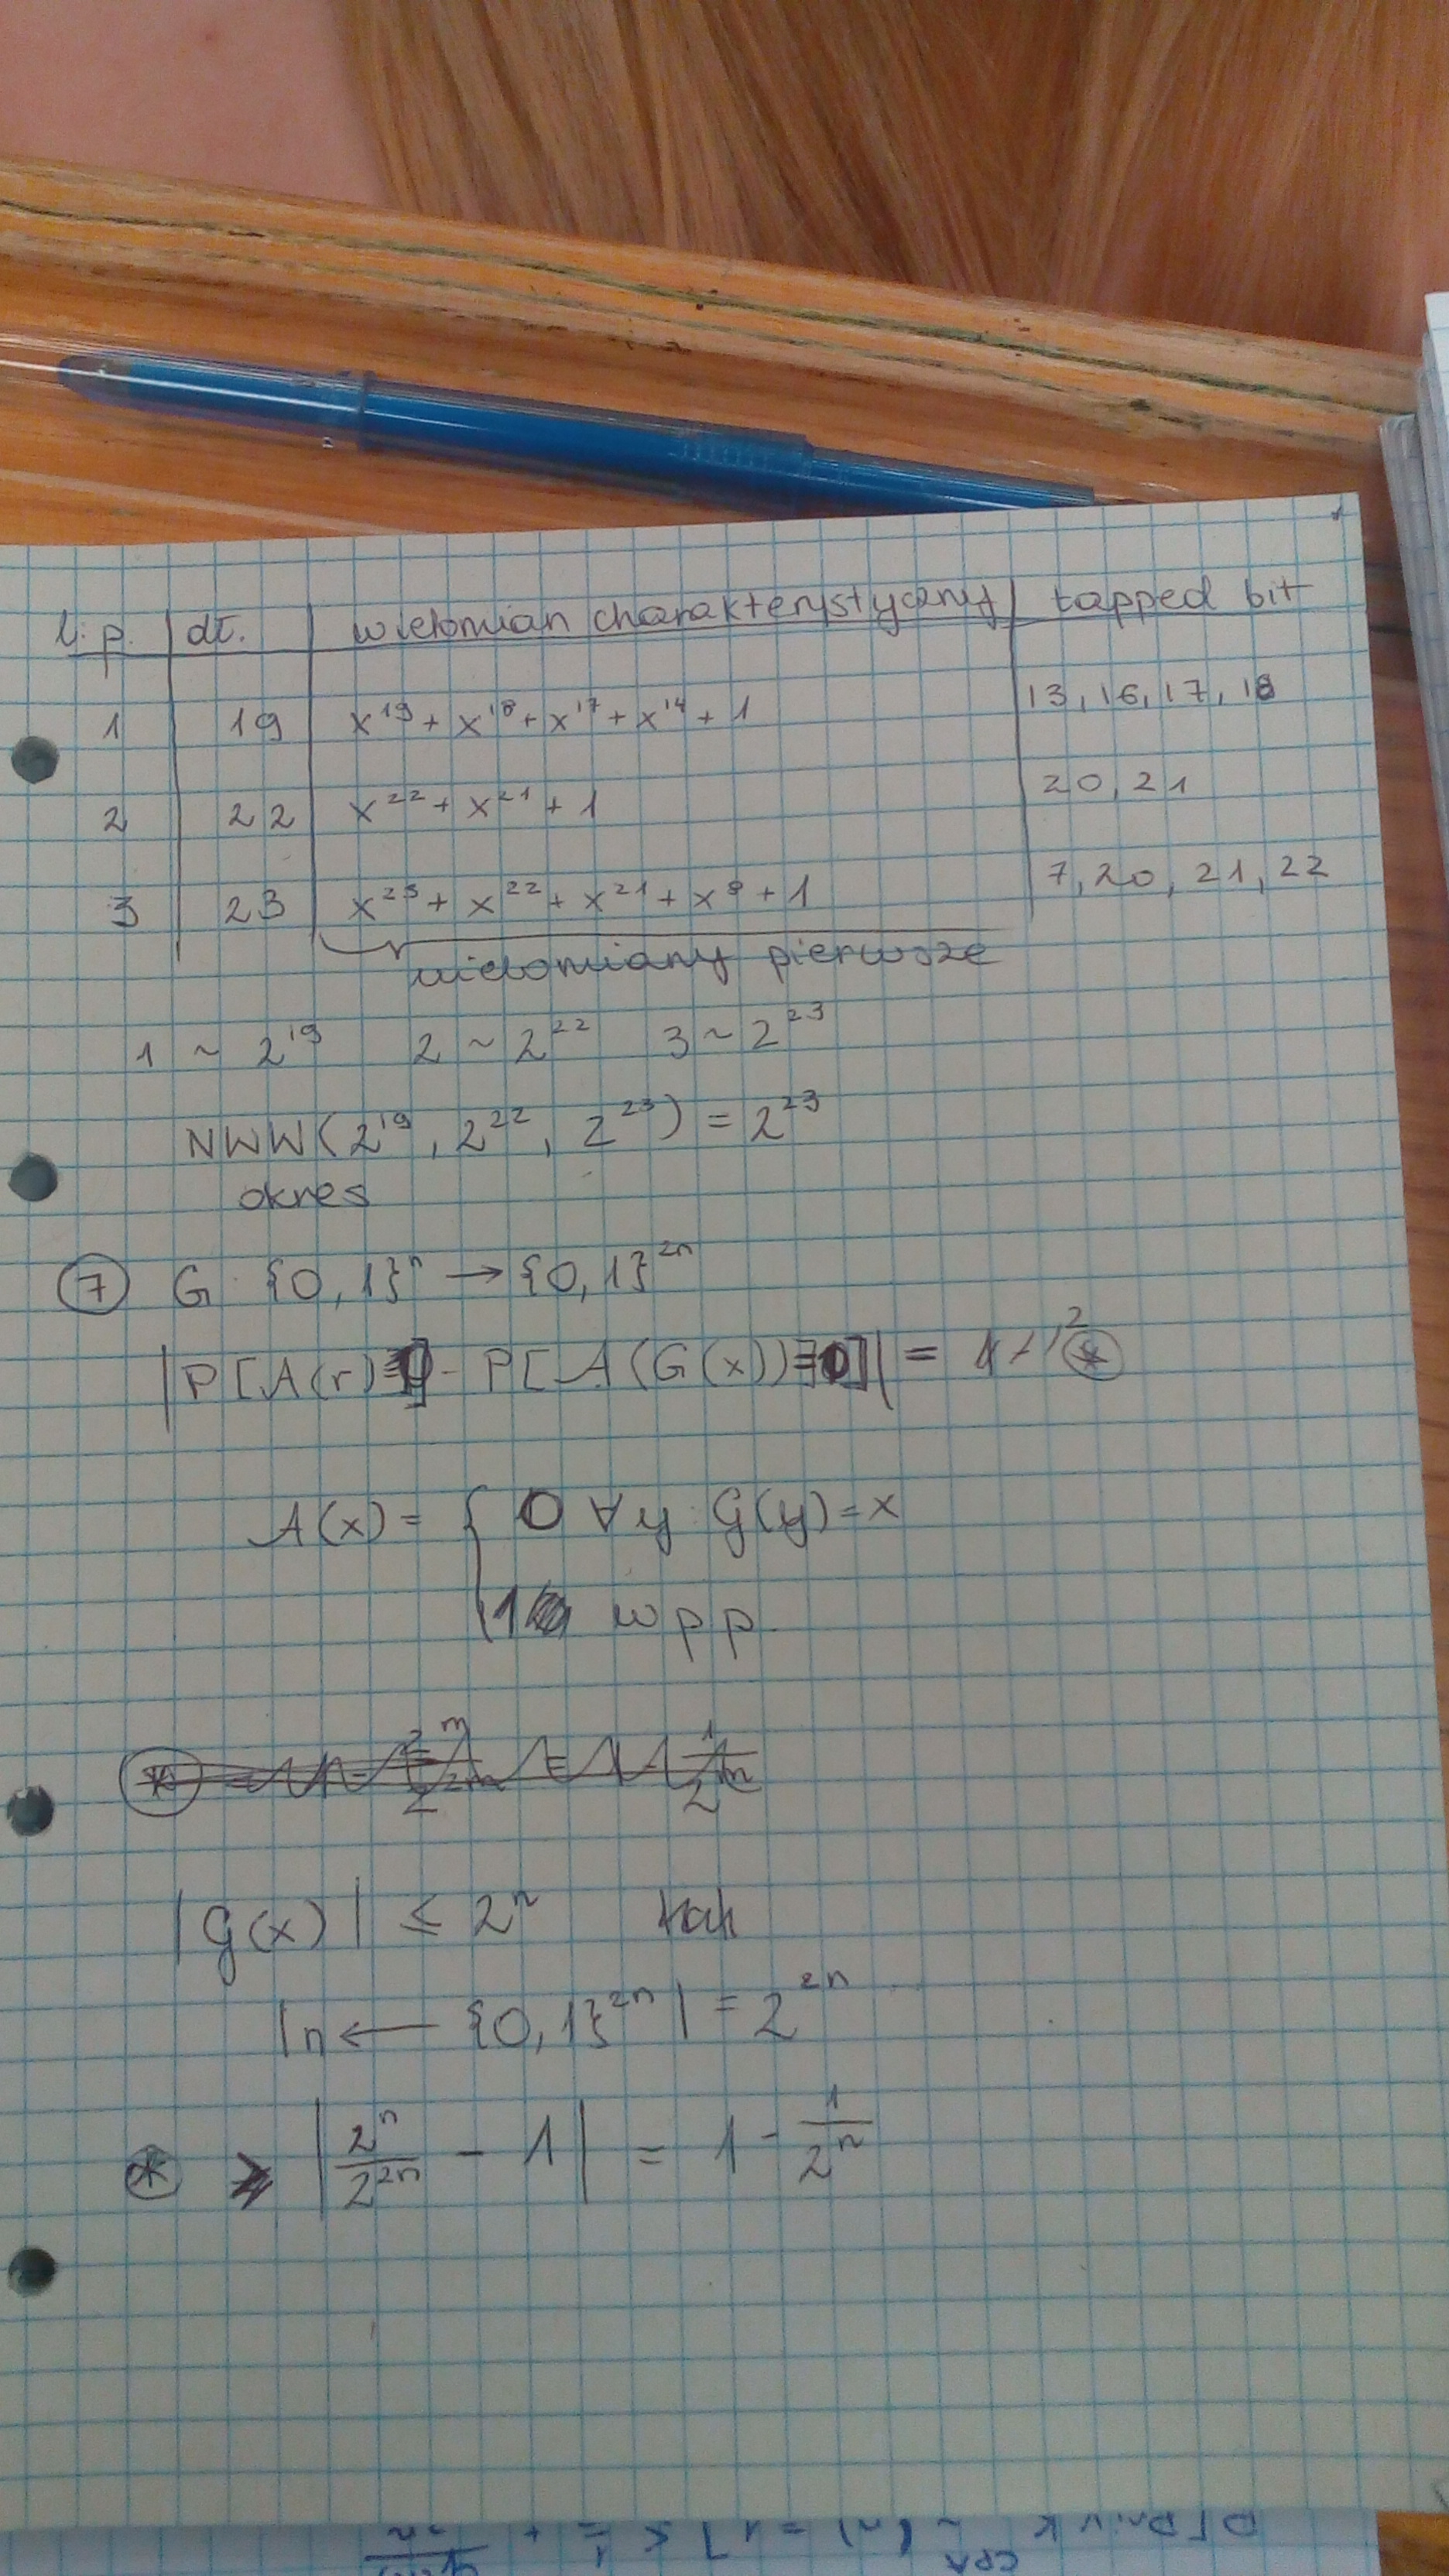 l.p. | dł. | wielomian charakterystyczny | tapped bit
1 | 19 | x^19 + x^18 + x^17 + x^14 + 1 | 13, 16, 17, 18
2 | 22 | x^22 + x^21 + 1 | 20, 21
3 | 23 | x^23 + x^22 + x^21 + x^8 + 1 | 7, 20, 21, 22
wielomiany pierwsze
1 ~ 2^19 2 ~ 2^22 3 ~ 2^23
NWW(2^19, 2^22, 2^23) = 2^23
okres
(7) G {0,1}^n → {0,1}^2n
|P[A(r)=0] - P[A(G(x))=0]| = ⊛
A(x) = { 0 ∀y: G(y)=x
1 wpp.
|G(x)| ≤ 2^n
|r ← {0,1}^2n| = 2^2n
⊛ ≥ |2^n/2^2n - 1| = 1 - 1/2^n